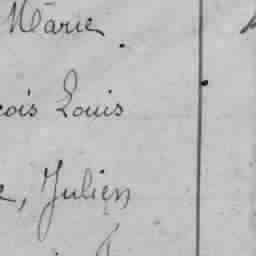 Marie
çois Louis
e, Julien